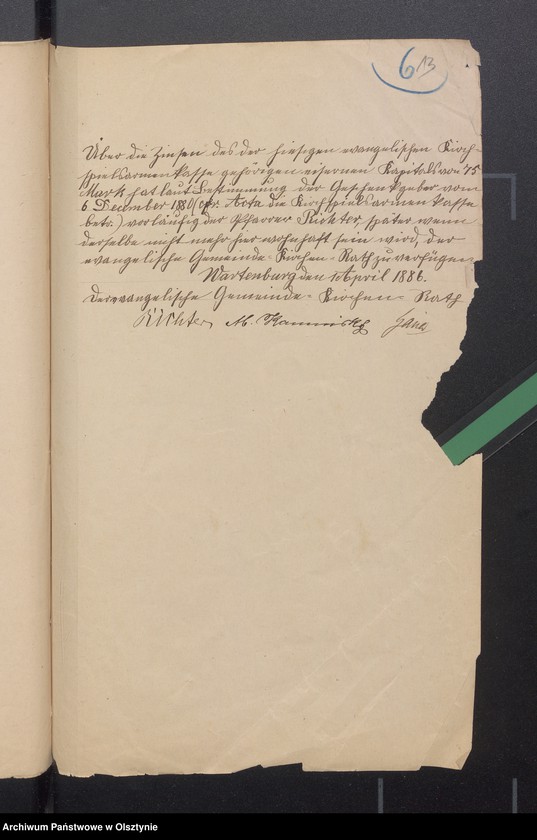 6 13
Über die Zinsen des der hiesigen evangelischen Kirch-
spielsarmenkasse gehörigen eisernen Kapitals von 75
Mark hat laut Bestimmung der Geschenkgeber vom
6 December 1880 (cfr. Acta die Kirchspielsarmenkasse
betr.) vorläufig der Pfarrer Richter, später wenn
derselbe nicht mehr hier wohnhaft sein wird, der
evangelische Gemeinde-Kirchen-Rath zu verfügen.
Wartenburg den 1 April 1886.
Der evangelische Gemeinde-Kirchen-Rath
Richter M. Kaminski
Archiwum Państwowe w Olsztynie